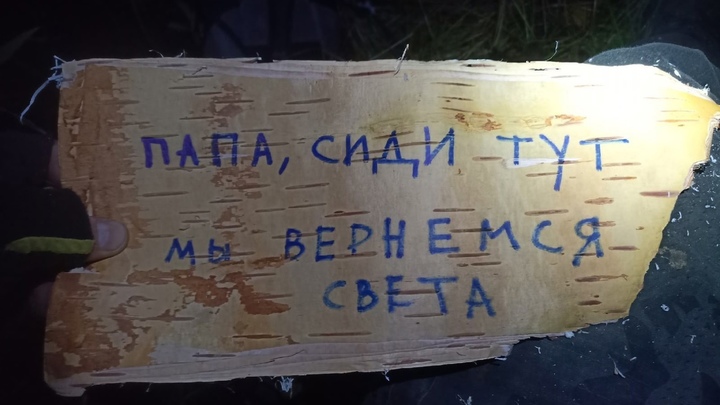 ПАПА, СИДИ ТУТ
МЫ ВЕРНЕМСЯ
СВЕТА